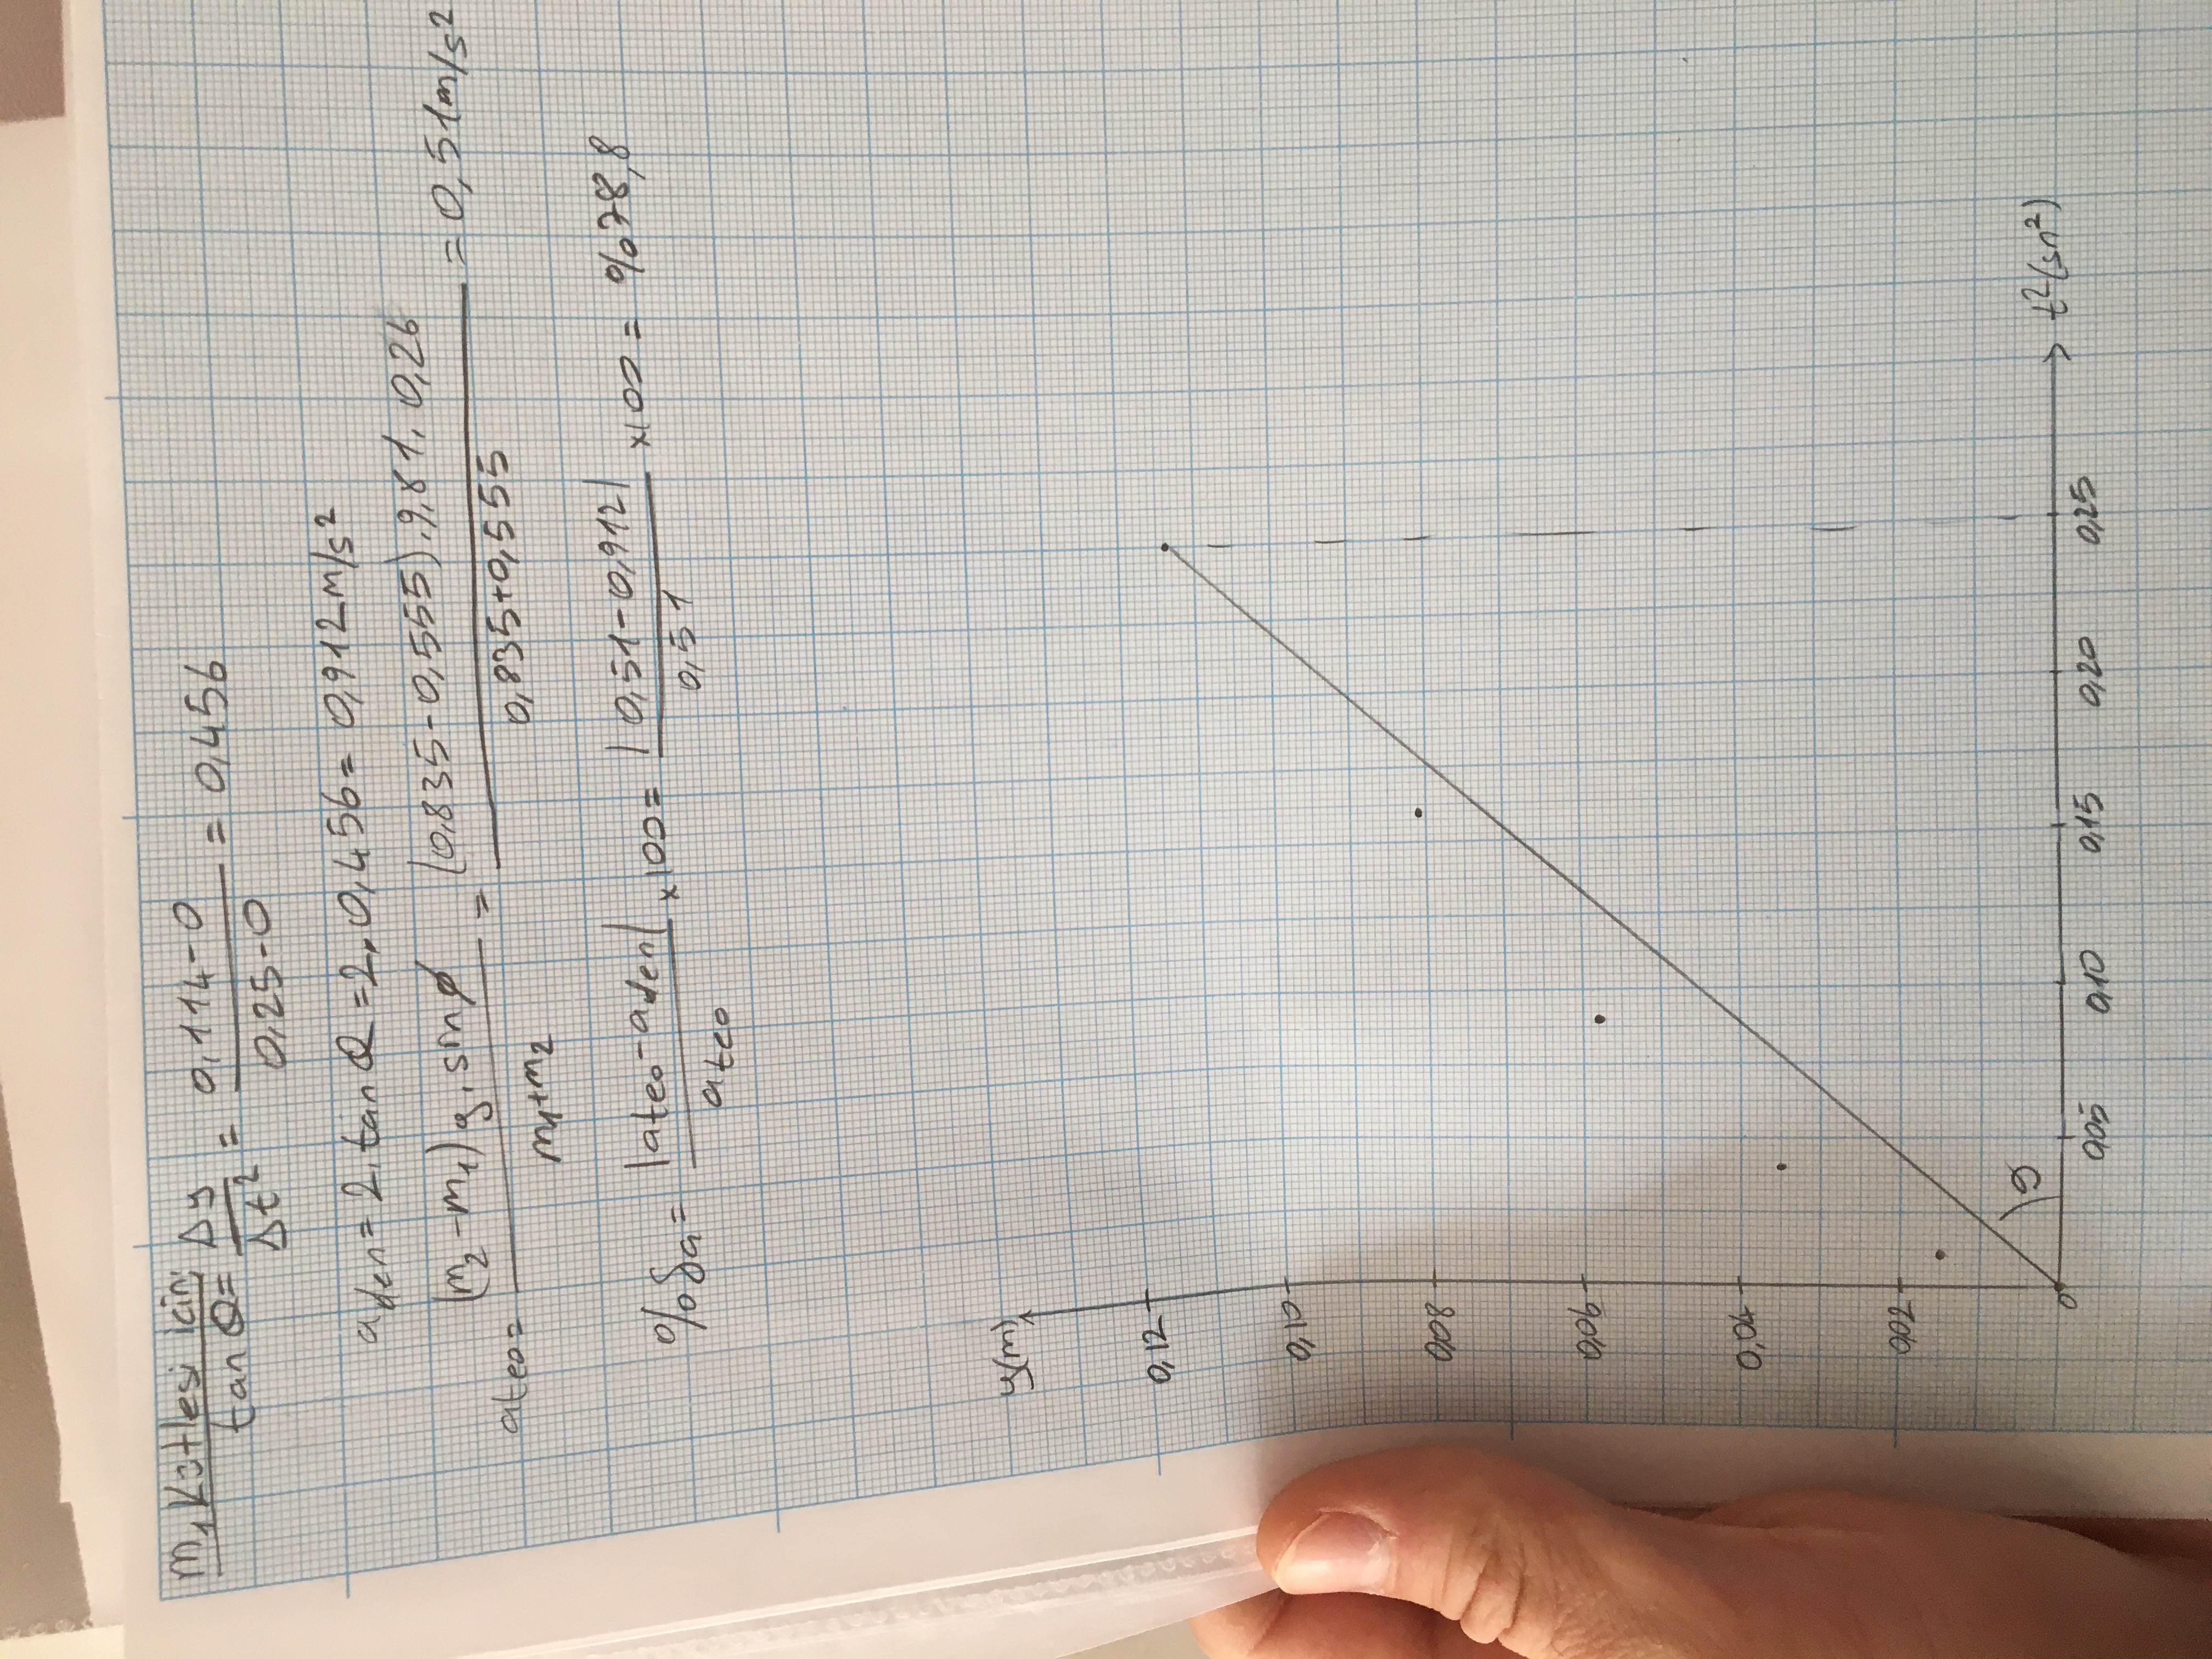 m₁ Kütlesi için:
tan Θ = Δy / Δt² = 0,114-0 / 0,25-0 = 0,456
aden = 2. tan Θ = 2. 0,456 = 0,912 m/s²
ateo = (m₂-m₁) g. sin ϕ / m₁+m₂ = (0,835-0,555).9,81. 0,26 / 0,835+0,555 = 0,51 m/s²
% δa = |ateo-aden| / ateo x100 = |0,51-0,912| / 0,51 x100 = %78,8
y(m)
0,12
0,10
0,08
0,06
0,04
0,02
θ
0
0,05 0,10 0,15 0,20 0,25
t² (sn²)